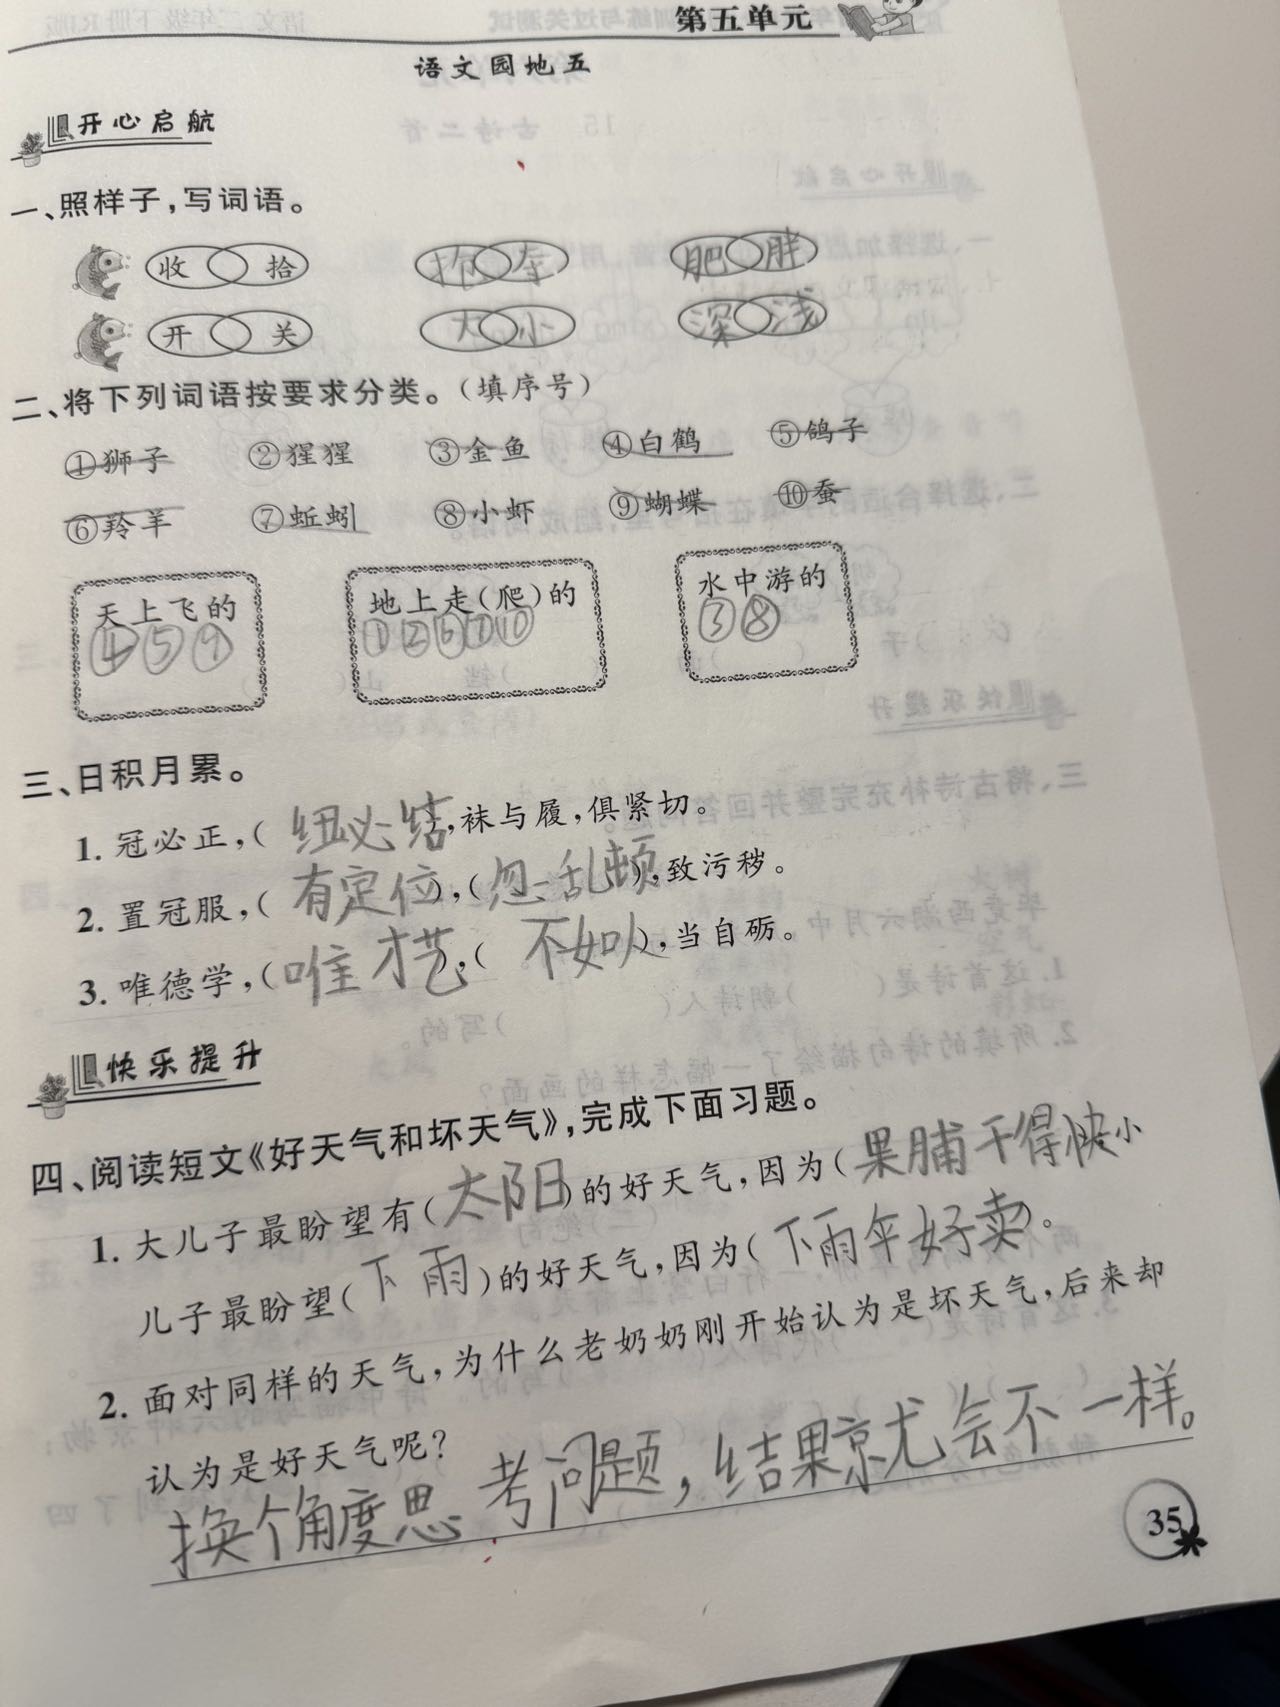 第五单元
语文园地五
开心启航
一、照样子，写词语。
收 拾 肥 胖
开 关 大 小 深 浅
二、将下列词语按要求分类。（填序号）
①狮子 ②猩猩 ③金鱼 ④白鹤 ⑤鸽子
⑥羚羊 ⑦蚯蚓 ⑧小虾 ⑨蝴蝶 ⑩蚕
天上飞的 地上走（爬）的 水中游的
④⑤⑨ ①②⑥⑦⑩ ③⑧
三、日积月累。
1. 冠必正，（纽必结，袜与履，俱紧切。
2. 置冠服，（有定位），（忽乱顿），致污秽。
3. 唯德学，（唯才艺，（不如人），当自砺。
快乐提升
四、阅读短文《好天气和坏天气》，完成下面习题。
1. 大儿子最盼望有（太阳）的好天气，因为（果脯干得快小
儿子最盼望（下雨）的好天气，因为（下雨伞好卖）。
2. 面对同样的天气，为什么老奶奶刚开始认为是坏天气，后来却
认为是好天气呢？
换个角度思考问题，结果就会不一样。
35